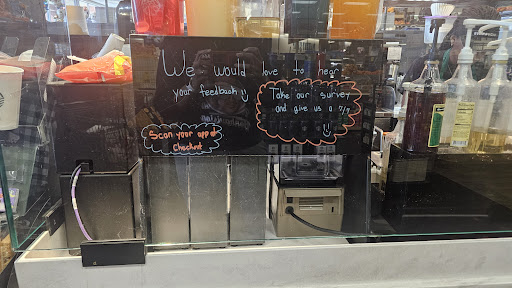 We would love to hear
your feedback :)
Take our survey
and give us a 7/7
:)
Scan your app at
Checkout